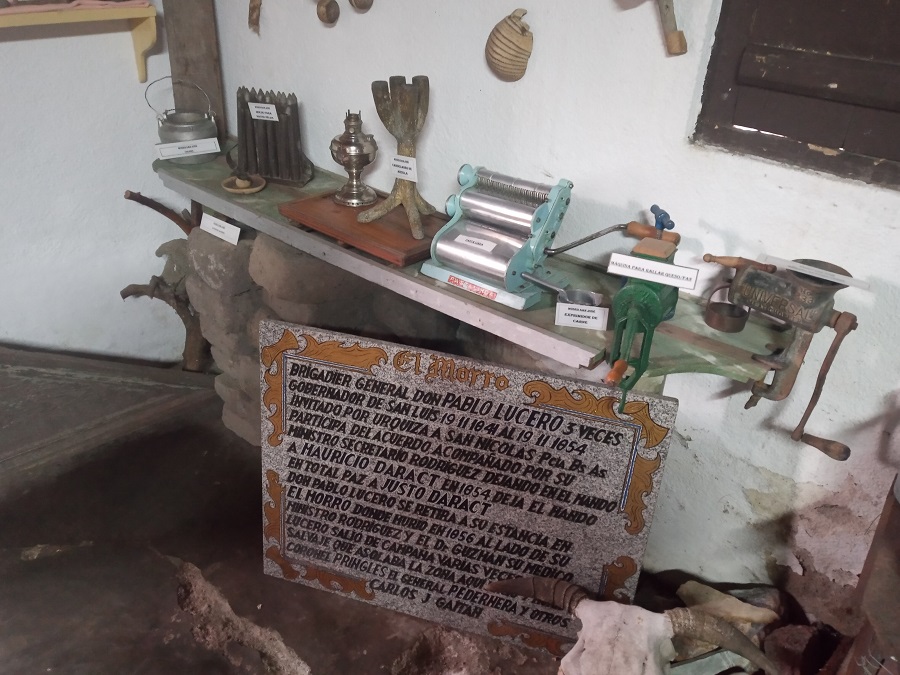 CANDELABRO DE
MAQUINA PARA RALLAR QUESO/PAN
EXPRIMIDOR DE
CARNE
UNIVERSAL
El Morro
BRIGADIER GENERAL DON PABLO LUCERO 3 VECES
GOBERNADOR DE SAN LUIS 19 11 1841 AL 19 11 1854
INVITADO POR URQUIZA A SAN NICOLAS Pcia. Bs. As
PARTICIPA DEL ACUERDO ACOMPAÑADO POR SU
MINISTRO SECRETARIO RODRIGUEZ DEJANDO EN EL MANDO
A MAURICIO DARACT. EN 1854 DEJA EL MANDO
EN TOTAL PAZ A JUSTO DARACT
DON PABLO LUCERO SE RETIRA A SU ESTANCIA EN
EL MORRO DONDE MURIO EN 1856 AL LADO DE SU
MINISTRO RODRIGUEZ Y EL Dr. GUZMAN SU MEDICO
LUCERO SALIO DE CAMPAÑA VARIAS
SALVAJE QUE ASOLABA LA ZONA AQUI
CORONEL PRINGLES EL GENERAL PEDERNERA Y OTROS
CARLOS J GAITAN